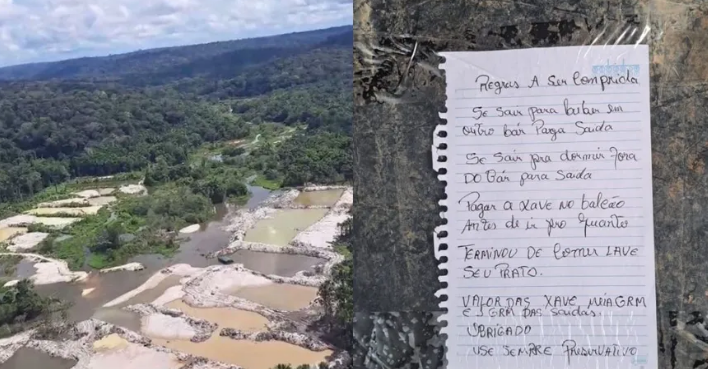 Regras A Ser Comprida
Se Sair para baitar em
outro bar Paga Saida
Se Sair pra dormir fora
DO Bar para Saida
Pagar a xave no balcão
Antes de ir pro Quanto
TERMINOU DE Comer LAVE
SEU PRATO.
VALOR DAS XAVE MEIA GRM
E 1 GRM DAS SAIDAS,
OBRIGADO
USE SEMPRE PRESERVATIVO